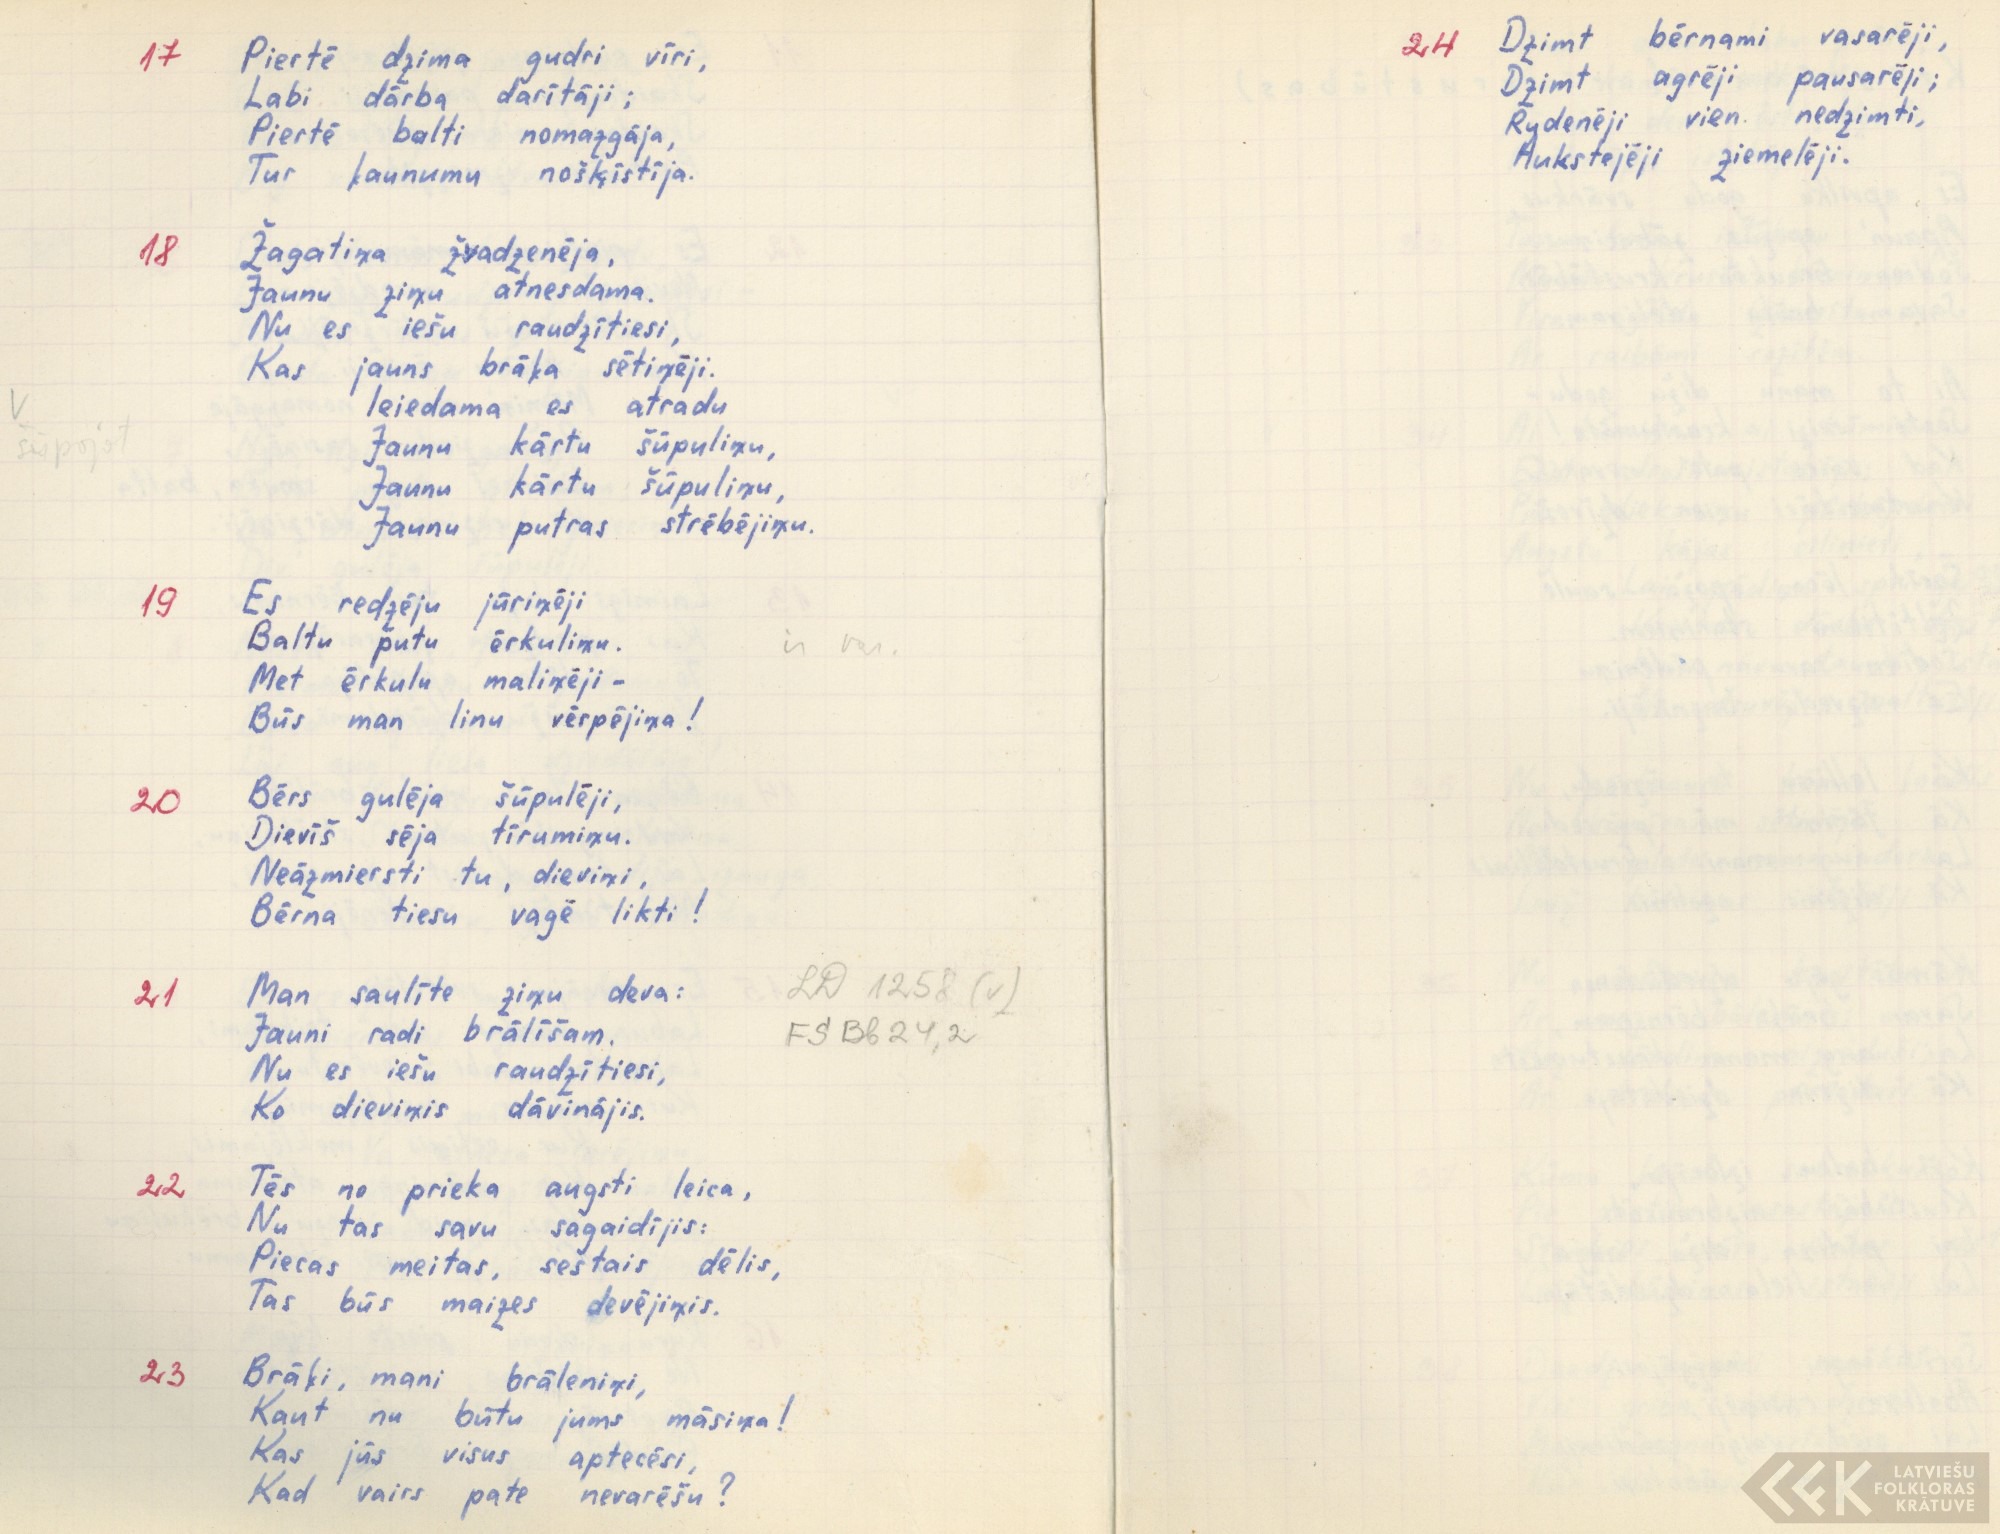 17 Piertē dzima gudri vīri,
Labi dārba darītāji;
Piertē balti nomazgāja,
Tur ļaunumu nošķīstīja.
18 Žagatiņa žvadzenēja,
Jaunu ziņu atnesdama.
Nu es iešu raudzītiesi,
Kas jauns brāļa sētiņēji.
Ieiedama es atradu
Jaunu kārtu šūpuliņu,
Jaunu kārtu šūpuliņu,
Jaunu putras strēbējiņu.
V
šūpojot
19 Es redzēju jūriņēji
Baltu putu ērkuliņu.
Met ērkulu maliņēji -
Būs man linu vērpējiņa!
ir var.
20 Bērs gulēja šūpulēji,
Dieviš sēja tīrumiņu.
Neāzmiersti tu, dieviņi,
Bērna tiesu vagē likti!
21 Man saulīte ziņu deva:
Jauni radi brālīšam.
Nu es iešu raudzītiesi,
Ko dieviņis dāvinājis.
LD 1258 (v)
FS Bb 24,2
22 Tēs no prieka augsti leica,
Nu tas savu sagaidījis:
Piecas meitas, sestais dēlis,
Tas būs maizes devējiņis.
23 Brāļi, mani brāleniņi,
Kaut nu būtu jums māsiņa!
Kas jūs visus aptecēsi,
Kad vairs pate nevarēšu?
24 Dzimt bērnami vasarēji,
Dzimt agrēji pausarēji;
Rydenēji vien nedzimti,
Aukstejēji ziemelēji.
LATVIEŠU
FOLKLORAS
KRĀTUVE